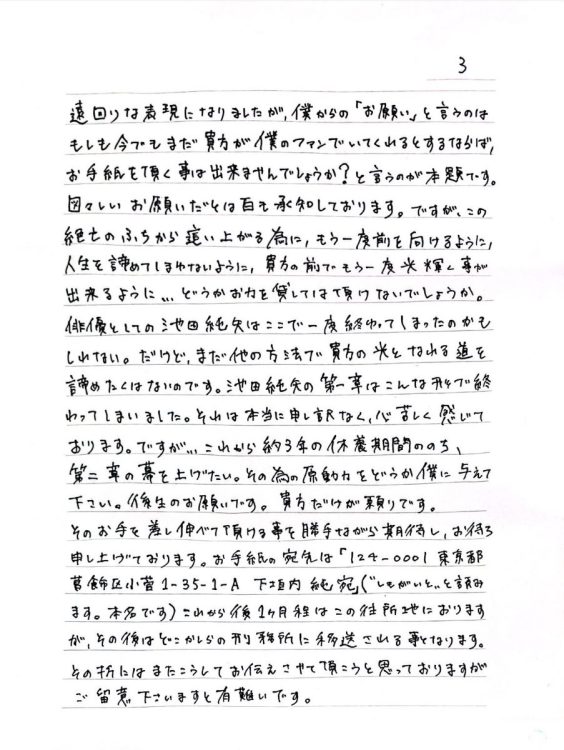 3
遠回りな表現になりましたが、僕からの「お願い」と言うのは
もしも今でもまだ貴方が僕のファンでいてくれるとするならば、
お手紙を頂く事は出来ませんでしょうか?と言うのが本題です。
図々しいお願いだとは百も承知しております。ですが、この
絶亡のふちから這い上がる為に、もう一度前を向けるように、
人生を諦めてしまわないように、貴方の前でもう一度光輝く事が
出来るように…どうかお力を貸しては頂けないでしょうか。
俳優としての池田純矢はここで一度終わってしまったのかも
しれない。だけど、まだ他の方法で貴方の光となれる道を
諦めたくはないのです。池田純矢の第一章はこんな形で終
わってしまいました。それは本当に申し訳なく、心苦しく感じて
おります。ですが…これから約3年の休養期間ののち、
第二章の幕を上げたい。その為の原動力をどうか僕に与えて
下さい。後生のお願いです。貴方だけが頼りです。
そのお手を差し伸べて頂ける事を勝手ながら期待し、お待ち
申し上げております。お手紙の宛先は「124-0001 東京都
葛飾区小菅1-35-1-A 下垣内 純宛」("しもがいと"と読み
ます。本名です)これから後1ヶ月程はこの住所地におります
が、その後はどこかしらの刑務所に移送される事となります。
その折にはまたこうしてお伝えさせて頂こうと思っておりますが
ご留意下さいますと有難いです。